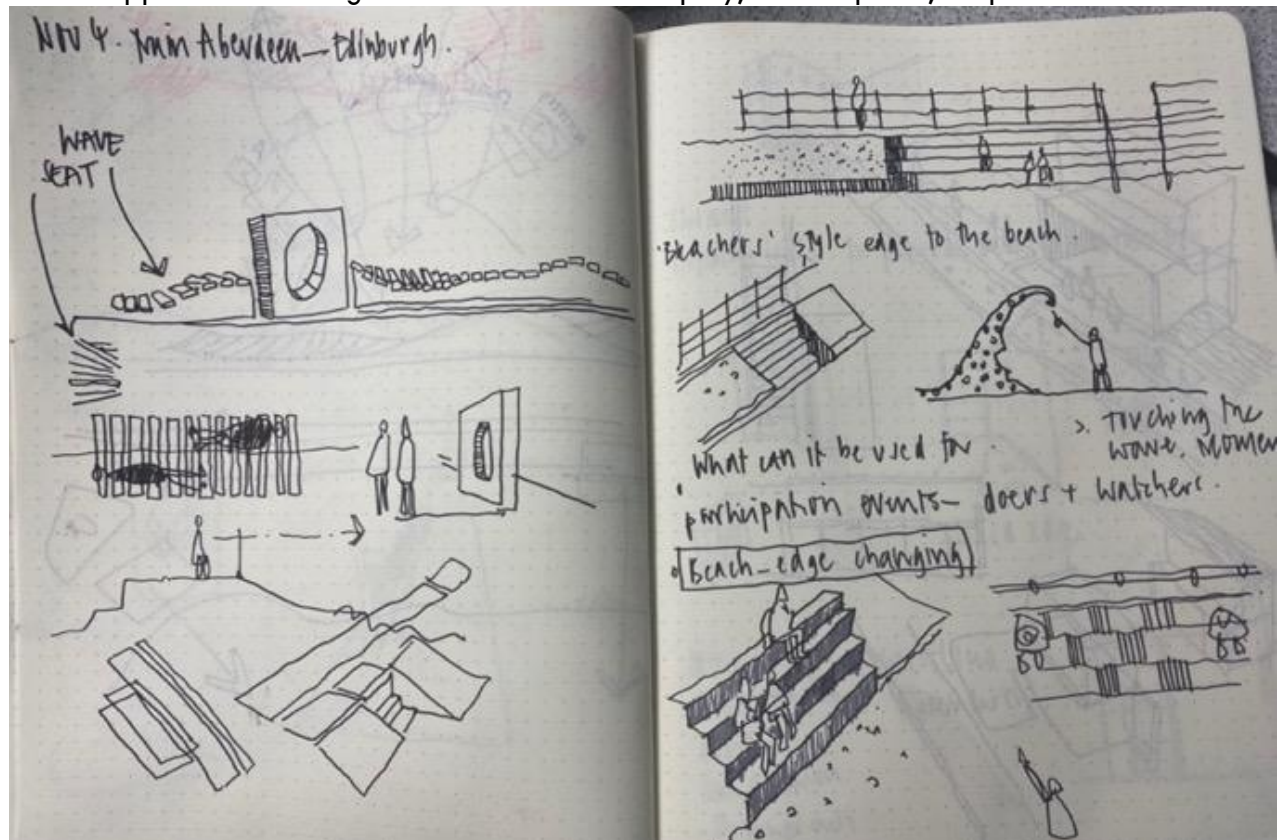 Nov 4. Train Aberdeen – Edinburgh.
WAVE
SEAT
'Bleachers' style edge to the beach.
• What can it be used for.
> Touching the
wave. Momen
participation events – doers + watchers.
• Beach_edge changing